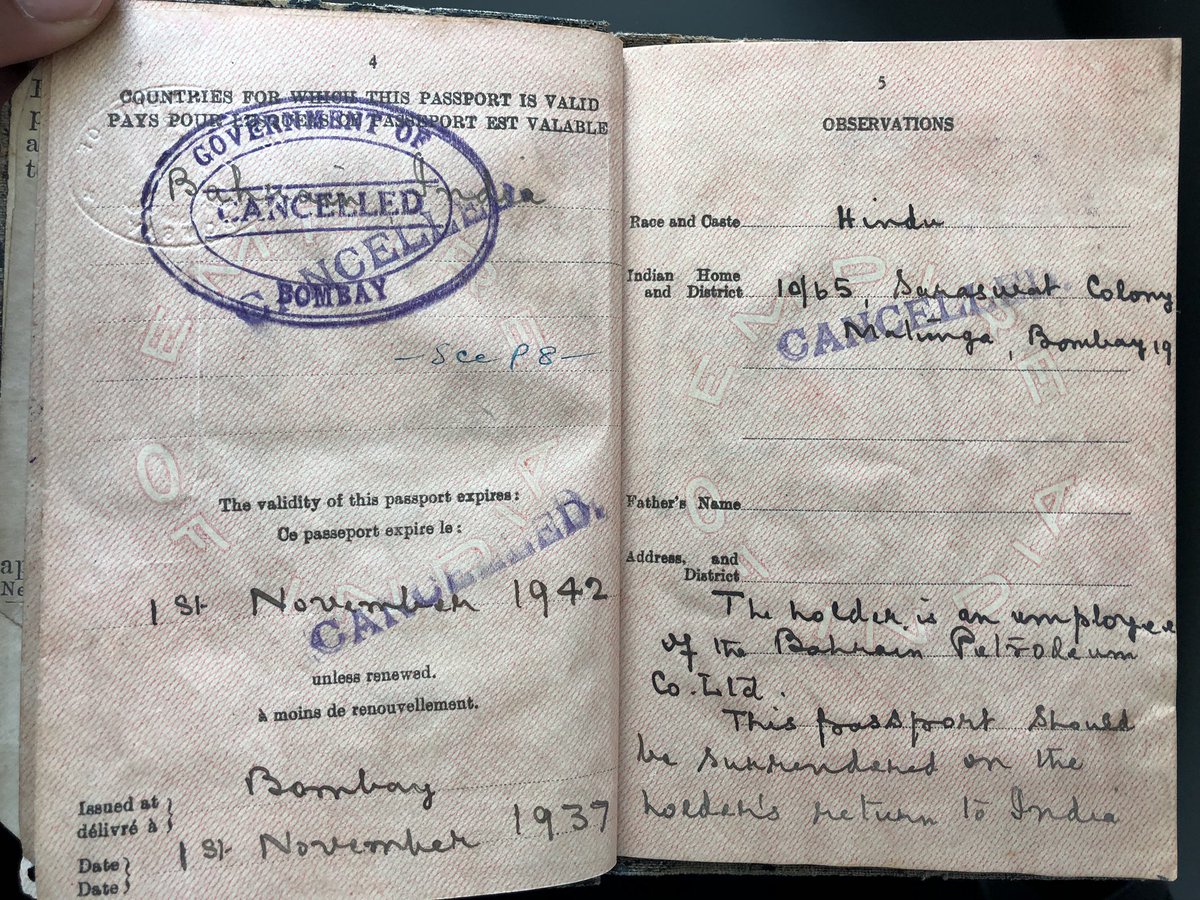 4
COUNTRIES FOR WHICH THIS PASSPORT IS VALID
PAYS POUR LESQUELS CE PASSEPORT EST VALABLE
GOVERNMENT OF
Bahrain India
CANCELLED
CANCELLED
BOMBAY
— See P 8 —
The validity of this passport expires:
Ce passeport expire le:
CANCELLED.
1 St November 1942
unless renewed.
à moins de renouvellement.
Issued at
délivré à
Bombay
Date
Date
1 St November 1937
5
OBSERVATIONS
Race and Caste Hindu
Indian Home
and District
10/65, Saraswat Colony
CANCELLED.
Matunga, Bombay 19
Father's Name
Address, and
District
The holder is an employee
of the Bahrain Petroleum
Co. Ltd.
This passport should
be surrendered on the
holder's return to India